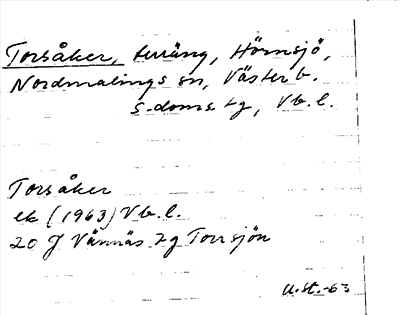 Torsåker, terräng, Hörnsjö,
Nordmalings sn, Västerb.
s. doms. tg, Vb. l.
Torsåker
ek (1963) Vb. l.
20 J Vännäs Torrsjön
U. St. -63